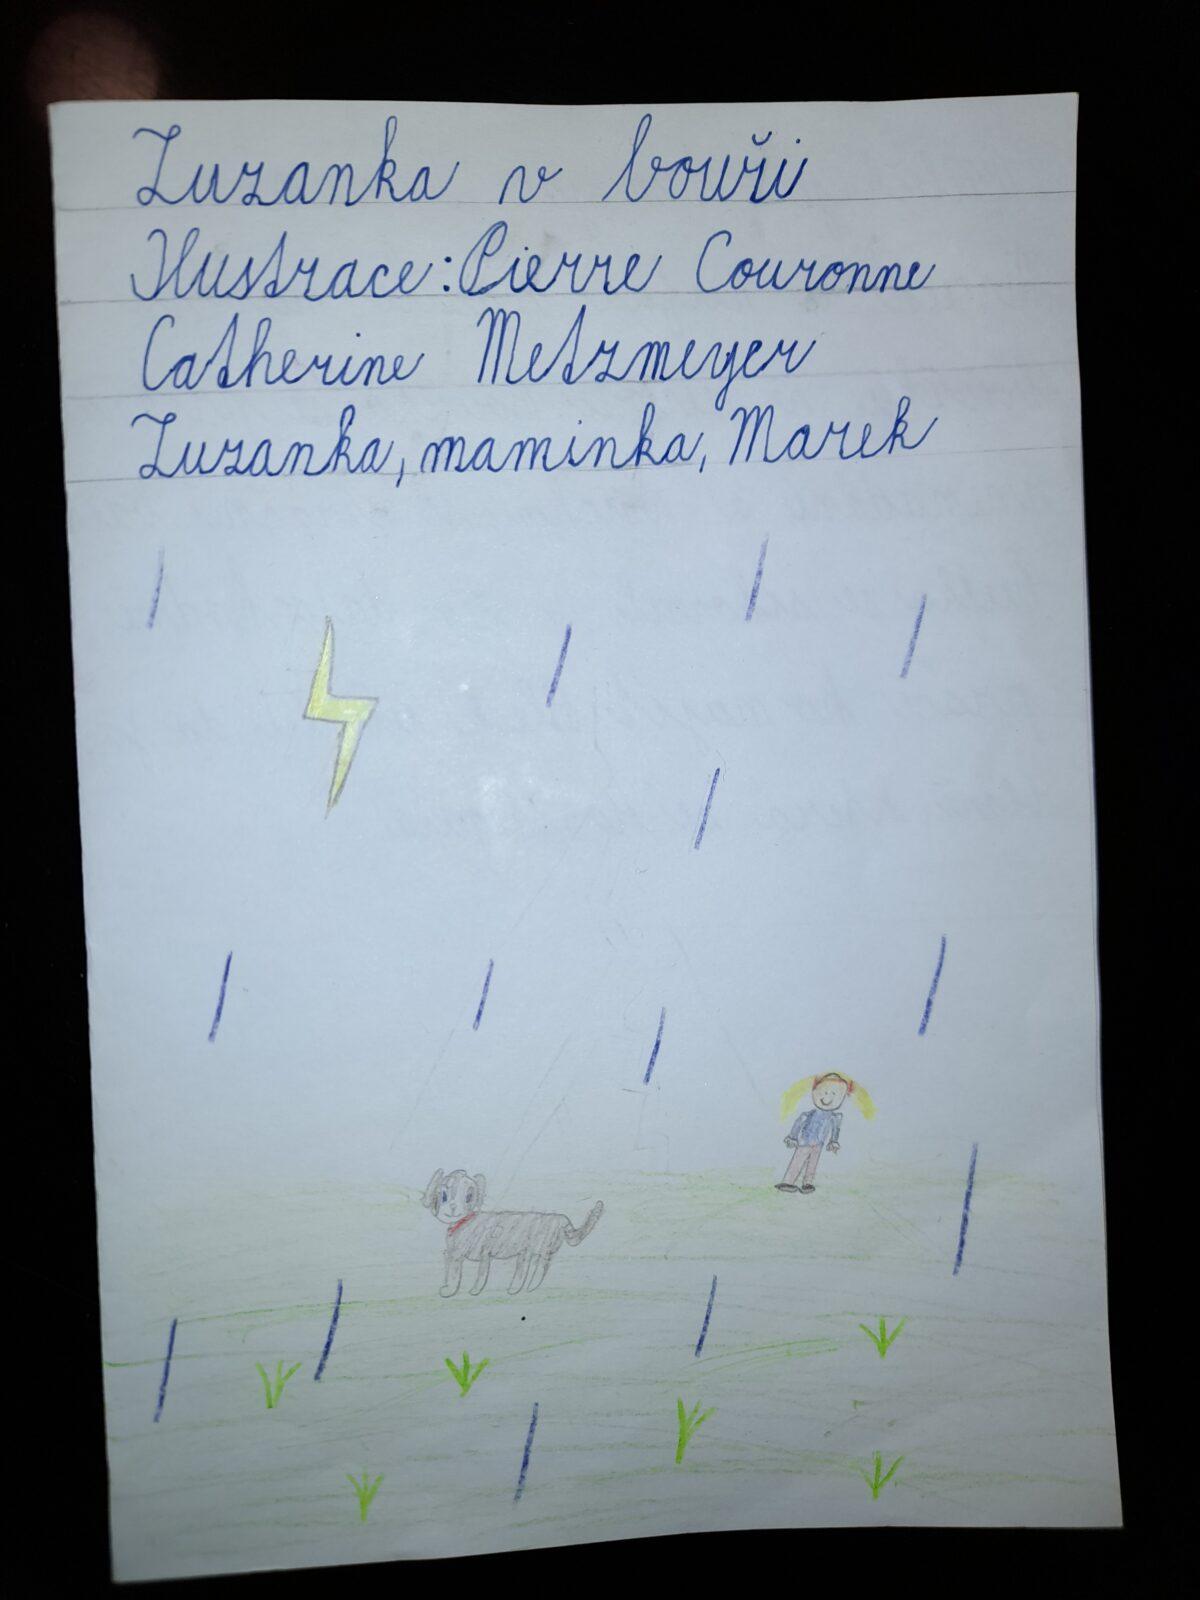 Zuzanka v bouři
Ilustrace: Pierre Couronne
Catherine Metzmeyer
Zuzanka, maminka, Marek